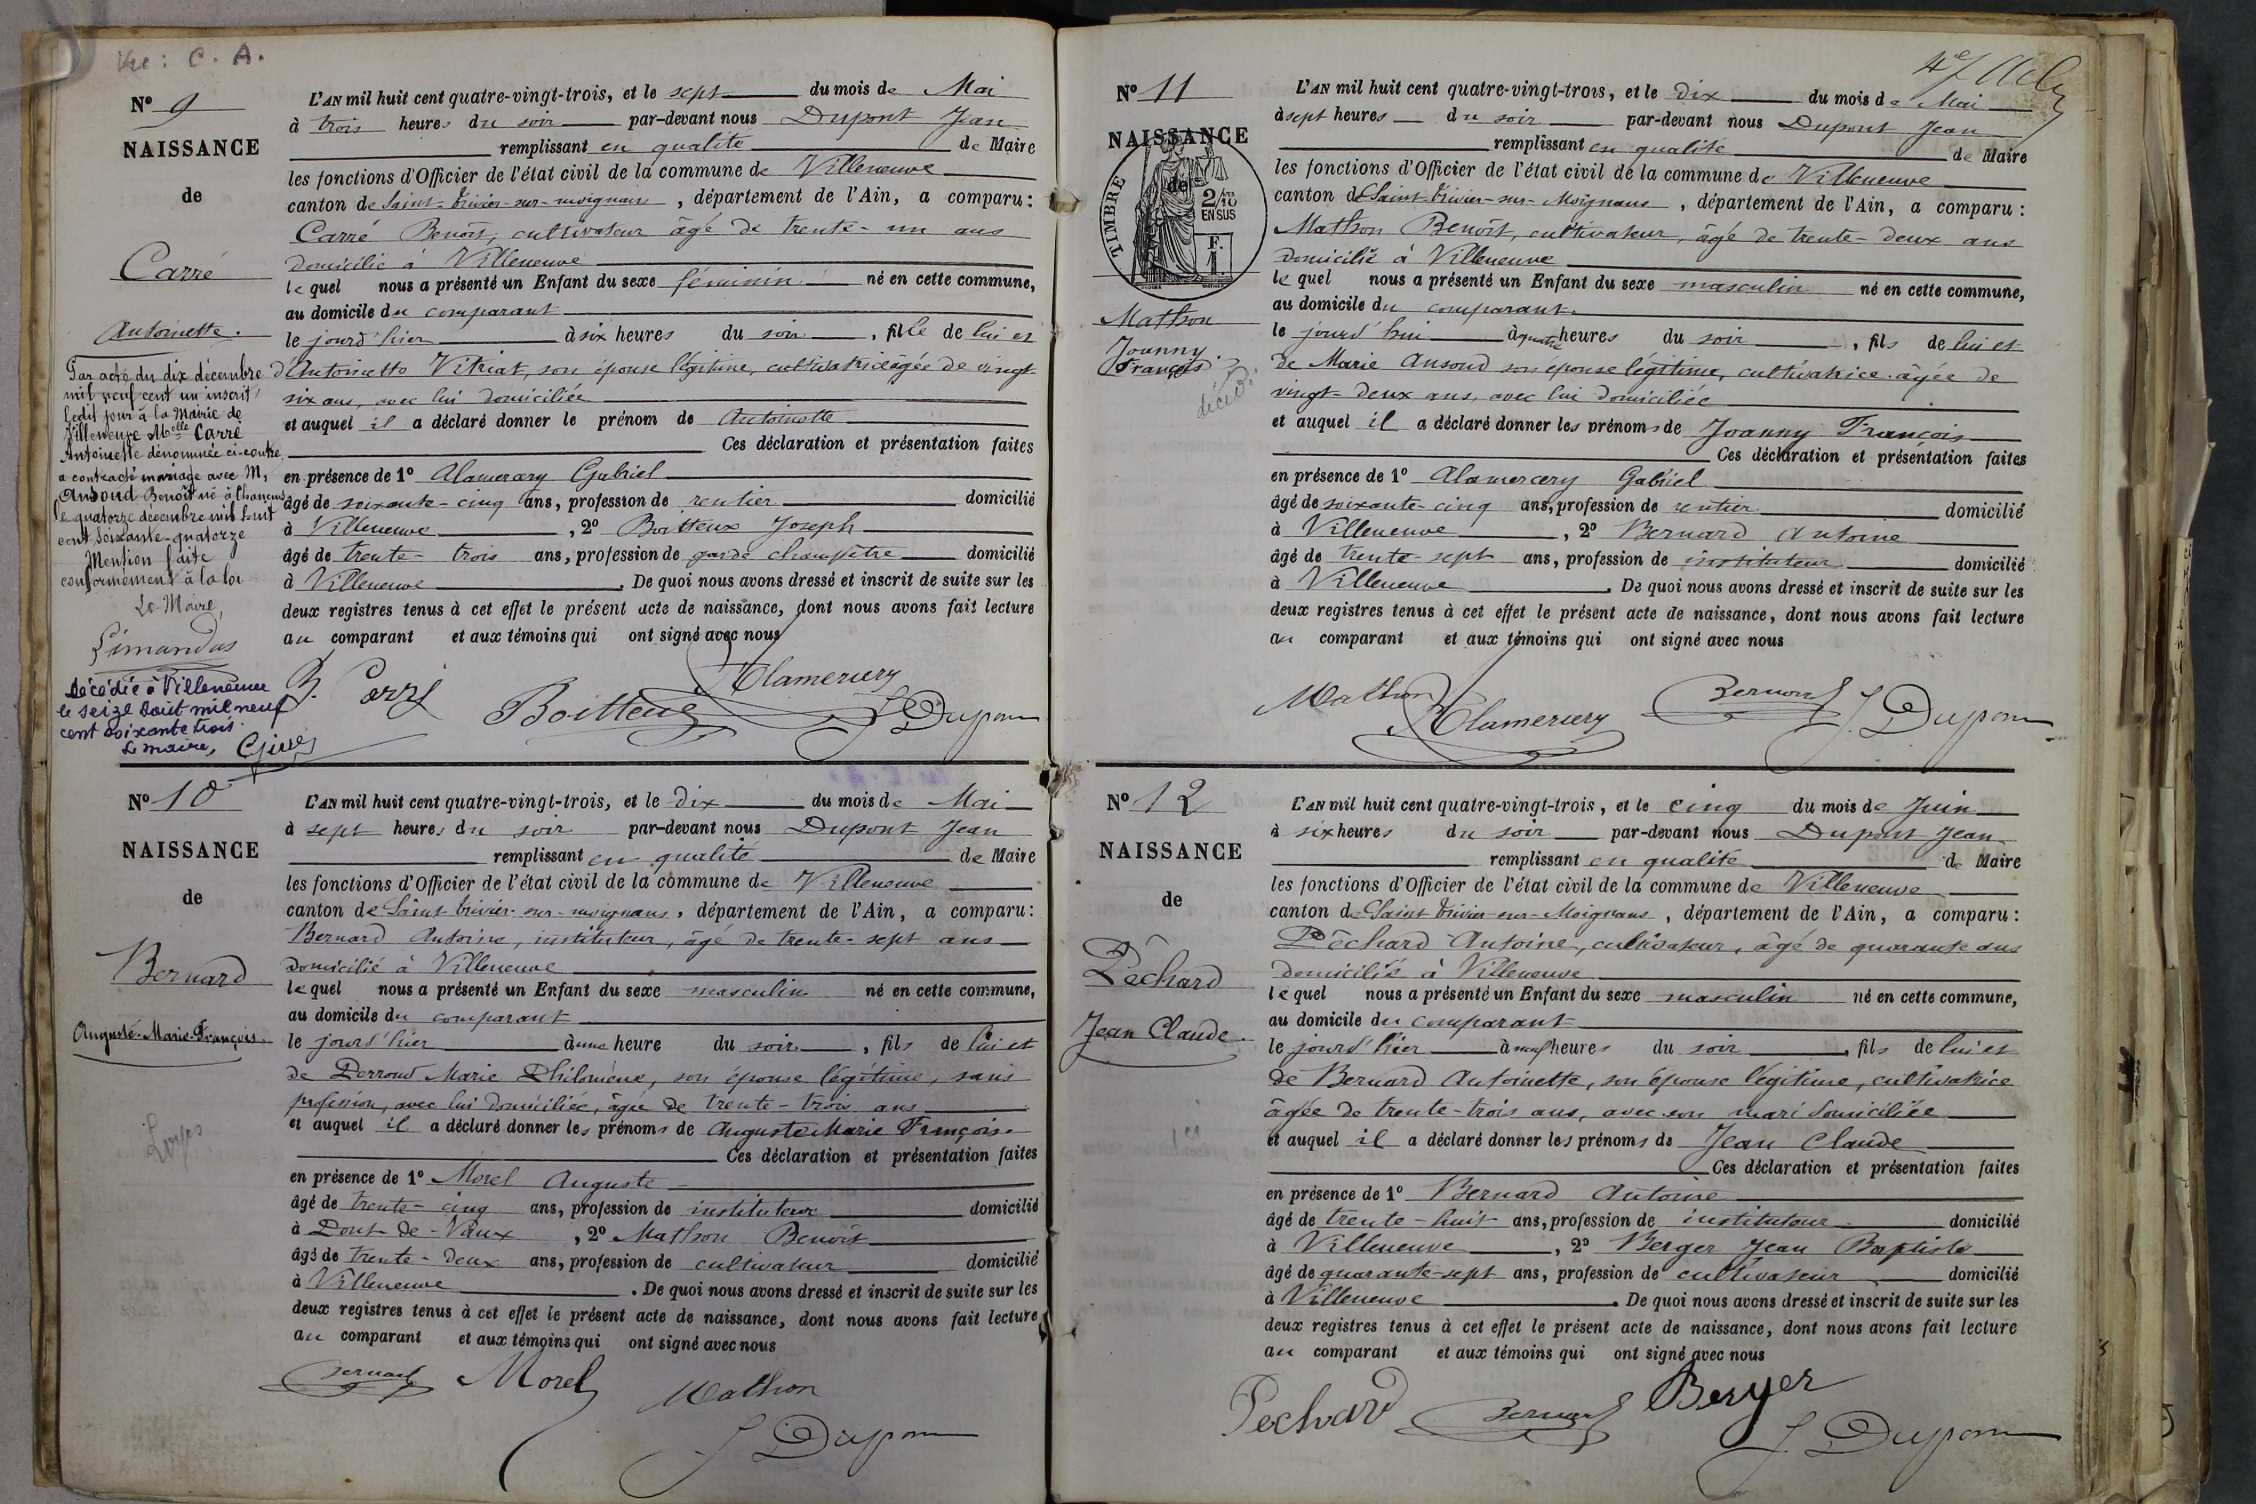 Vu : C. A.
Nº 9
NAISSANCE
de
Carré
Antoinette.
Par acte du dix décembre
mil neuf cent un inscrit
ledit jour à la Mairie de
Villeneuve Melle Carré
Antoinette dénommée ci-contre
a contracté mariage avec M.
Ansoud Benoît né à Chaneins
le quatorze décembre mil huit
cent soixante-quatorze
Mention faite
conformément à la loi
Le Maire,
Limandas
décédée à Villeneuve
le seize août mil neuf
cent soixante trois.
Le maire,
L'AN mil huit cent quatre-vingt-trois, et le sept du mois de Mai
à trois heures du soir par-devant nous Dupont Jean
remplissant en qualité de Maire
les fonctions d'Officier de l'état civil de la commune de Villeneuve
canton de Saint-trivier-sur-moignans, département de l'Ain, a comparu :
Carré Benoît, cultivateur âgé de trente-un ans
domicilié à Villeneuve
lequel nous a présenté un Enfant du sexe féminin né en cette commune,
au domicile du comparant
le jourd'hier à six heures du soir, fille de lui et
d'Antoinette Vitriat, son épouse légitime, cultivatrice âgée de vingt-
six ans, avec lui domiciliée
et auquel il a déclaré donner le prénom de Antoinette
Ces déclaration et présentation faites
en présence de 1º Alamercery Gabriel
âgé de soixante-cinq ans, profession de rentier domicilié
à Villeneuve, 2º Boitteux Joseph
âgé de trente-trois ans, profession de garde champêtre domicilié
à Villeneuve. De quoi nous avons dressé et inscrit de suite sur les
deux registres tenus à cet effet le présent acte de naissance, dont nous avons fait lecture
au comparant et aux témoins qui ont signé avec nous
B. Carré Boitteux Alamercery J. Dupont
Nº 10
NAISSANCE
de
Bernard
Auguste-Marie-François.
L'AN mil huit cent quatre-vingt-trois, et le dix du mois de Mai
à sept heures du soir par-devant nous Dupont Jean
remplissant en qualité de Maire
les fonctions d'Officier de l'état civil de la commune de Villeneuve
canton de Saint-trivier-sur-moignans, département de l'Ain, a comparu :
Bernard Antoine, instituteur, âgé de trente-sept ans
domicilié à Villeneuve
lequel nous a présenté un Enfant du sexe masculin né en cette commune,
au domicile du comparant
le jourd'hier à une heure du soir, fils de lui et
de Perroud Marie Philomène, son épouse légitime, sans
profession, avec lui domiciliée, âgée de trente-trois ans
et auquel il a déclaré donner les prénoms de Auguste Marie François.
Ces déclaration et présentation faites
en présence de 1º Morel Auguste
âgé de trente-cinq ans, profession de instituteur domicilié
à Pont-de-Vaux, 2º Mathon Benoît
âgé de trente-deux ans, profession de cultivateur domicilié
à Villeneuve. De quoi nous avons dressé et inscrit de suite sur les
deux registres tenus à cet effet le présent acte de naissance, dont nous avons fait lecture
au comparant et aux témoins qui ont signé avec nous
Bernard Morel Mathon
J. Dupont
Nº 11
NAISSANCE
de
TIMBRE
2/10
EN SUS
F.
1.
Mathon
Joanny.
François
décédé
L'AN mil huit cent quatre-vingt-trois, et le dix du mois de Mai
à sept heures du soir par-devant nous Dupont Jean
remplissant en qualité de Maire
les fonctions d'Officier de l'état civil de la commune de Villeneuve
canton de Saint-trivier-sur-Moignans, département de l'Ain, a comparu :
Mathon Benoît, cultivateur, âgé de trente-deux ans
domicilié à Villeneuve
lequel nous a présenté un Enfant du sexe masculin né en cette commune,
au domicile du comparant.
le jourd'hui à quatre heures du soir, fils de lui et
de Marie Ansoud son épouse légitime, cultivatrice âgée de
vingt-deux ans, avec lui domiciliée
et auquel il a déclaré donner les prénoms de Joanny François
Ces déclaration et présentation faites
en présence de 1º Alamercery Gabriel
âgé de soixante-cinq ans, profession de rentier domicilié
à Villeneuve, 2º Bernard Antoine
âgé de trente-sept ans, profession de instituteur domicilié
à Villeneuve. De quoi nous avons dressé et inscrit de suite sur les
deux registres tenus à cet effet le présent acte de naissance, dont nous avons fait lecture
au comparant et aux témoins qui ont signé avec nous
Mathon Alamercery Bernard J. Dupont
Nº 12
NAISSANCE
de
Pêchard
Jean Claude.
L'AN mil huit cent quatre-vingt-trois, et le cinq du mois de Juin
à six heures du soir par-devant nous Dupont Jean
remplissant en qualité de Maire
les fonctions d'Officier de l'état civil de la commune de Villeneuve
canton de Saint-trivier-sur-Moignans, département de l'Ain, a comparu :
Pêchard Antoine, cultivateur, âgé de quarante ans
domicilié à Villeneuve
lequel nous a présenté un Enfant du sexe masculin né en cette commune,
au domicile du comparant
le jourd'hier à neuf heures du soir, fils de lui et
de Bernard Antoinette, son épouse légitime, cultivatrice
âgée de trente-trois ans, avec son mari domiciliée
et auquel il a déclaré donner les prénoms de Jean Claude
Ces déclaration et présentation faites
en présence de 1º Bernard Antoine
âgé de trente-huit ans, profession de instituteur domicilié
à Villeneuve, 2º Berger Jean Baptiste
âgé de quarante-sept ans, profession de cultivateur domicilié
à Villeneuve. De quoi nous avons dressé et inscrit de suite sur les
deux registres tenus à cet effet le présent acte de naissance, dont nous avons fait lecture
au comparant et aux témoins qui ont signé avec nous
Pechard Bernard Berger J. Dupont